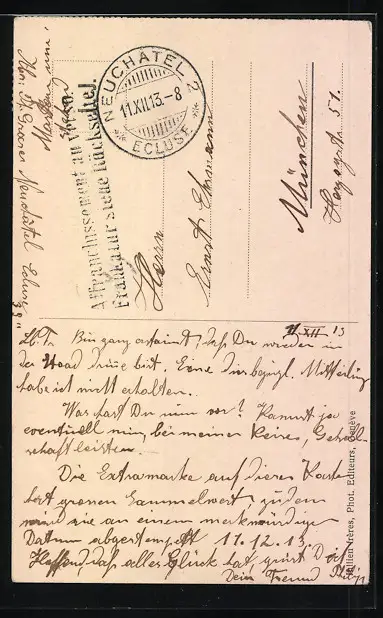 NEUCHATEL 2
11.XII.13.-8
ECLUSE
Affranchissement au verso.
Frankatur siehe Rückseite!
Herrn
Ernst
München
51.
Neuchâtel
11 XII 13
Lb. Fr. Bin ganz erstaunt, daß Du wieder in
der Stadt drin bist. Eine diesbezügl. Mitteilung
habe ich nicht erhalten.
Was hast Du nun vor? Kannst ja
eventuell mir bei meiner Reise, Gesell-
schaft leisten.
Die Extramarke auf dieser Kart
hat grossen Sammelwert, zudem
wird sie an einem merkwürdigen
Datum abgestempelt 11.12.13.
Hoffend daß alles Glück hat, grüßt Dich
Dein Freund
Frères, Phot. Editeurs, Genève